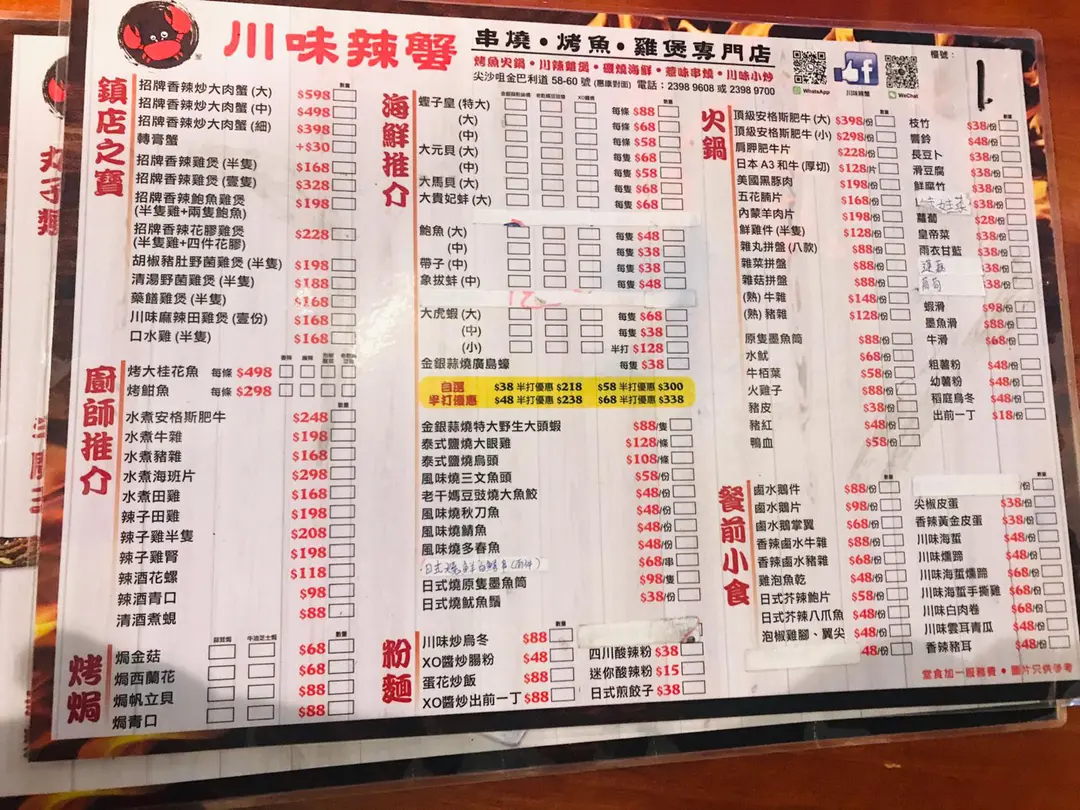 川味辣蟹
串燒・烤魚・雞煲專門店
烤魚火鍋・川辣雞煲・礦燒海鮮・惹味串燒・川味小炒
尖沙咀金巴利道 58-60 號 (惠康對面) 電話：2398 9608 或 2398 9700
WhatsApp
川味辣蟹
WeChat
檯號：
1
鎮店之寶
數量
招牌香辣炒大肉蟹 (大) $598
招牌香辣炒大肉蟹 (中) $498
招牌香辣炒大肉蟹 (細) $398
轉膏蟹 +$30
招牌香辣雞煲 (半隻) $168
招牌香辣雞煲 (壹隻) $328
招牌香辣鮑魚雞煲
(半隻雞+兩隻鮑魚) $198
招牌香辣花膠雞煲
(半隻雞+四件花膠) $228
胡椒豬肚野菌雞煲 (半隻) $198
清湯野菌雞煲 (半隻) $188
藥膳雞煲 (半隻) $168
川味麻辣田雞煲 (壹份) $168
口水雞 (半隻) $168
廚師推介
烤大桂花魚 每條 $498
烤鮒魚 每條 $298
數量
水煮安格斯肥牛 $248
水煮牛雜 $198
水煮豬雜 $168
水煮海班片 $298
水煮田雞 $168
辣子田雞 $198
辣子雞半隻 $208
辣子雞腎 $198
辣酒花螺 $118
辣酒青口 $98
清酒煮蜆 $88
烤焗
蒜茸焗 牛油芝士焗 數量
焗金菇 $68
焗西蘭花 $68
焗帆立貝 $88
焗青口 $88
海鮮推介
金銀蒜粉絲燒 老乾媽豆豉燒 XO醬燒 數量
蟶子皇 (特大) 每條 $88
(大) 每條 $68
(中) 每條 $58
大元貝 (大) 每隻 $68
(中) 每隻 $58
大馬貝 (大) 每隻 $68
大貴妃蚌 (大) 每隻 $68
鮑魚 (大) 每隻 $48
(中) 每隻 $38
帶子 (中) 每隻 $38
象拔蚌 (中) 每隻 $48
大虎蝦 (大) 每隻 $68
(中) 每隻 $38
(小) 半打 $128
金銀蒜燒廣島蠔 每隻 $38
自選
半打優惠
$38 半打優惠 $218 $58 半打優惠 $300
$48 半打優惠 $238 $68 半打優惠 $338
金銀蒜燒特大野生大頭蝦 $88/隻
泰式鹽燒大眼雞 $128/條
泰式鹽燒烏頭 $108/條
風味燒三文魚頭 $58/份
老干媽豆豉燒大魚鮫 $48/份
風味燒秋刀魚 $48/份
風味燒鯖魚 $48/份
風味燒多春魚 $48/份
$68/串
日式燒原隻墨魚筒 $98/隻
日式燒魷魚鬚 $38/份
粉麵
數量
川味炒烏冬 $88
XO醬炒腸粉 $48
蛋花炒飯 $88
XO醬炒出前一丁 $88
四川酸辣粉 $38
迷你酸辣粉 $15
日式煎餃子 $38
火鍋
數量
頂級安格斯肥牛 (大) $398/份
頂級安格斯肥牛 (小) $298/份
肩胛肥牛片 $228/份
日本 A3 和牛 (厚切) $128/片
美國黑豚肉 $198/份
五花腩片 $168/份
內蒙羊肉片 $198/份
鮮雞件 (半隻) $128/份
雜丸拼盤 (八款) $88/份
雜菜拼盤 $88/份
雜菇拼盤 $88/份
(熟) 牛雜 $148/份
(熟) 豬雜 $128/份
原隻墨魚筒 $88/份
水魷 $68/份
牛栢葉 $58/份
火雞子 $88/份
豬皮 $38/份
豬紅 $48/份
鴨血 $58/份
數量
枝竹 $38/份
響鈴 $48/份
長豆卜 $38/份
滑豆腐 $38/份
鮮腐竹 $38/份
娃娃菜 $38/份
蘿蔔 $28/份
皇帝菜 $38/份
雨衣甘藍 $38/份
38/份
38/份
蝦滑 $98/份
墨魚滑 $88/份
牛滑 $68/份
粗薯粉 $48/份
幼薯粉 $48/份
稻庭烏冬 $48/份
出前一丁 $18/份
餐前小食
數量
鹵水鵝件 $88/份
鹵水鵝片 $98/份
鹵水鵝掌翼 $68/份
香辣鹵水牛雜 $88/份
香辣鹵水豬雜 $68/份
雞泡魚乾 $48/份
日式芥辣鮑片 $58/份
日式芥辣八瓜魚 $48/份
泡椒雞腳、翼尖 $48/份
數量
/份
尖椒皮蛋 $38/份
香辣黃金皮蛋 $38/份
川味海蜇 $48/份
川味燻蹄 $48/份
川味海蜇燻蹄 $68/份
川味海蜇手撕雞 $68/份
川味白肉卷 $68/份
川味雲耳青瓜 $48/份
香辣豬耳 $48/份
堂食加一服務費・圖片只供參考